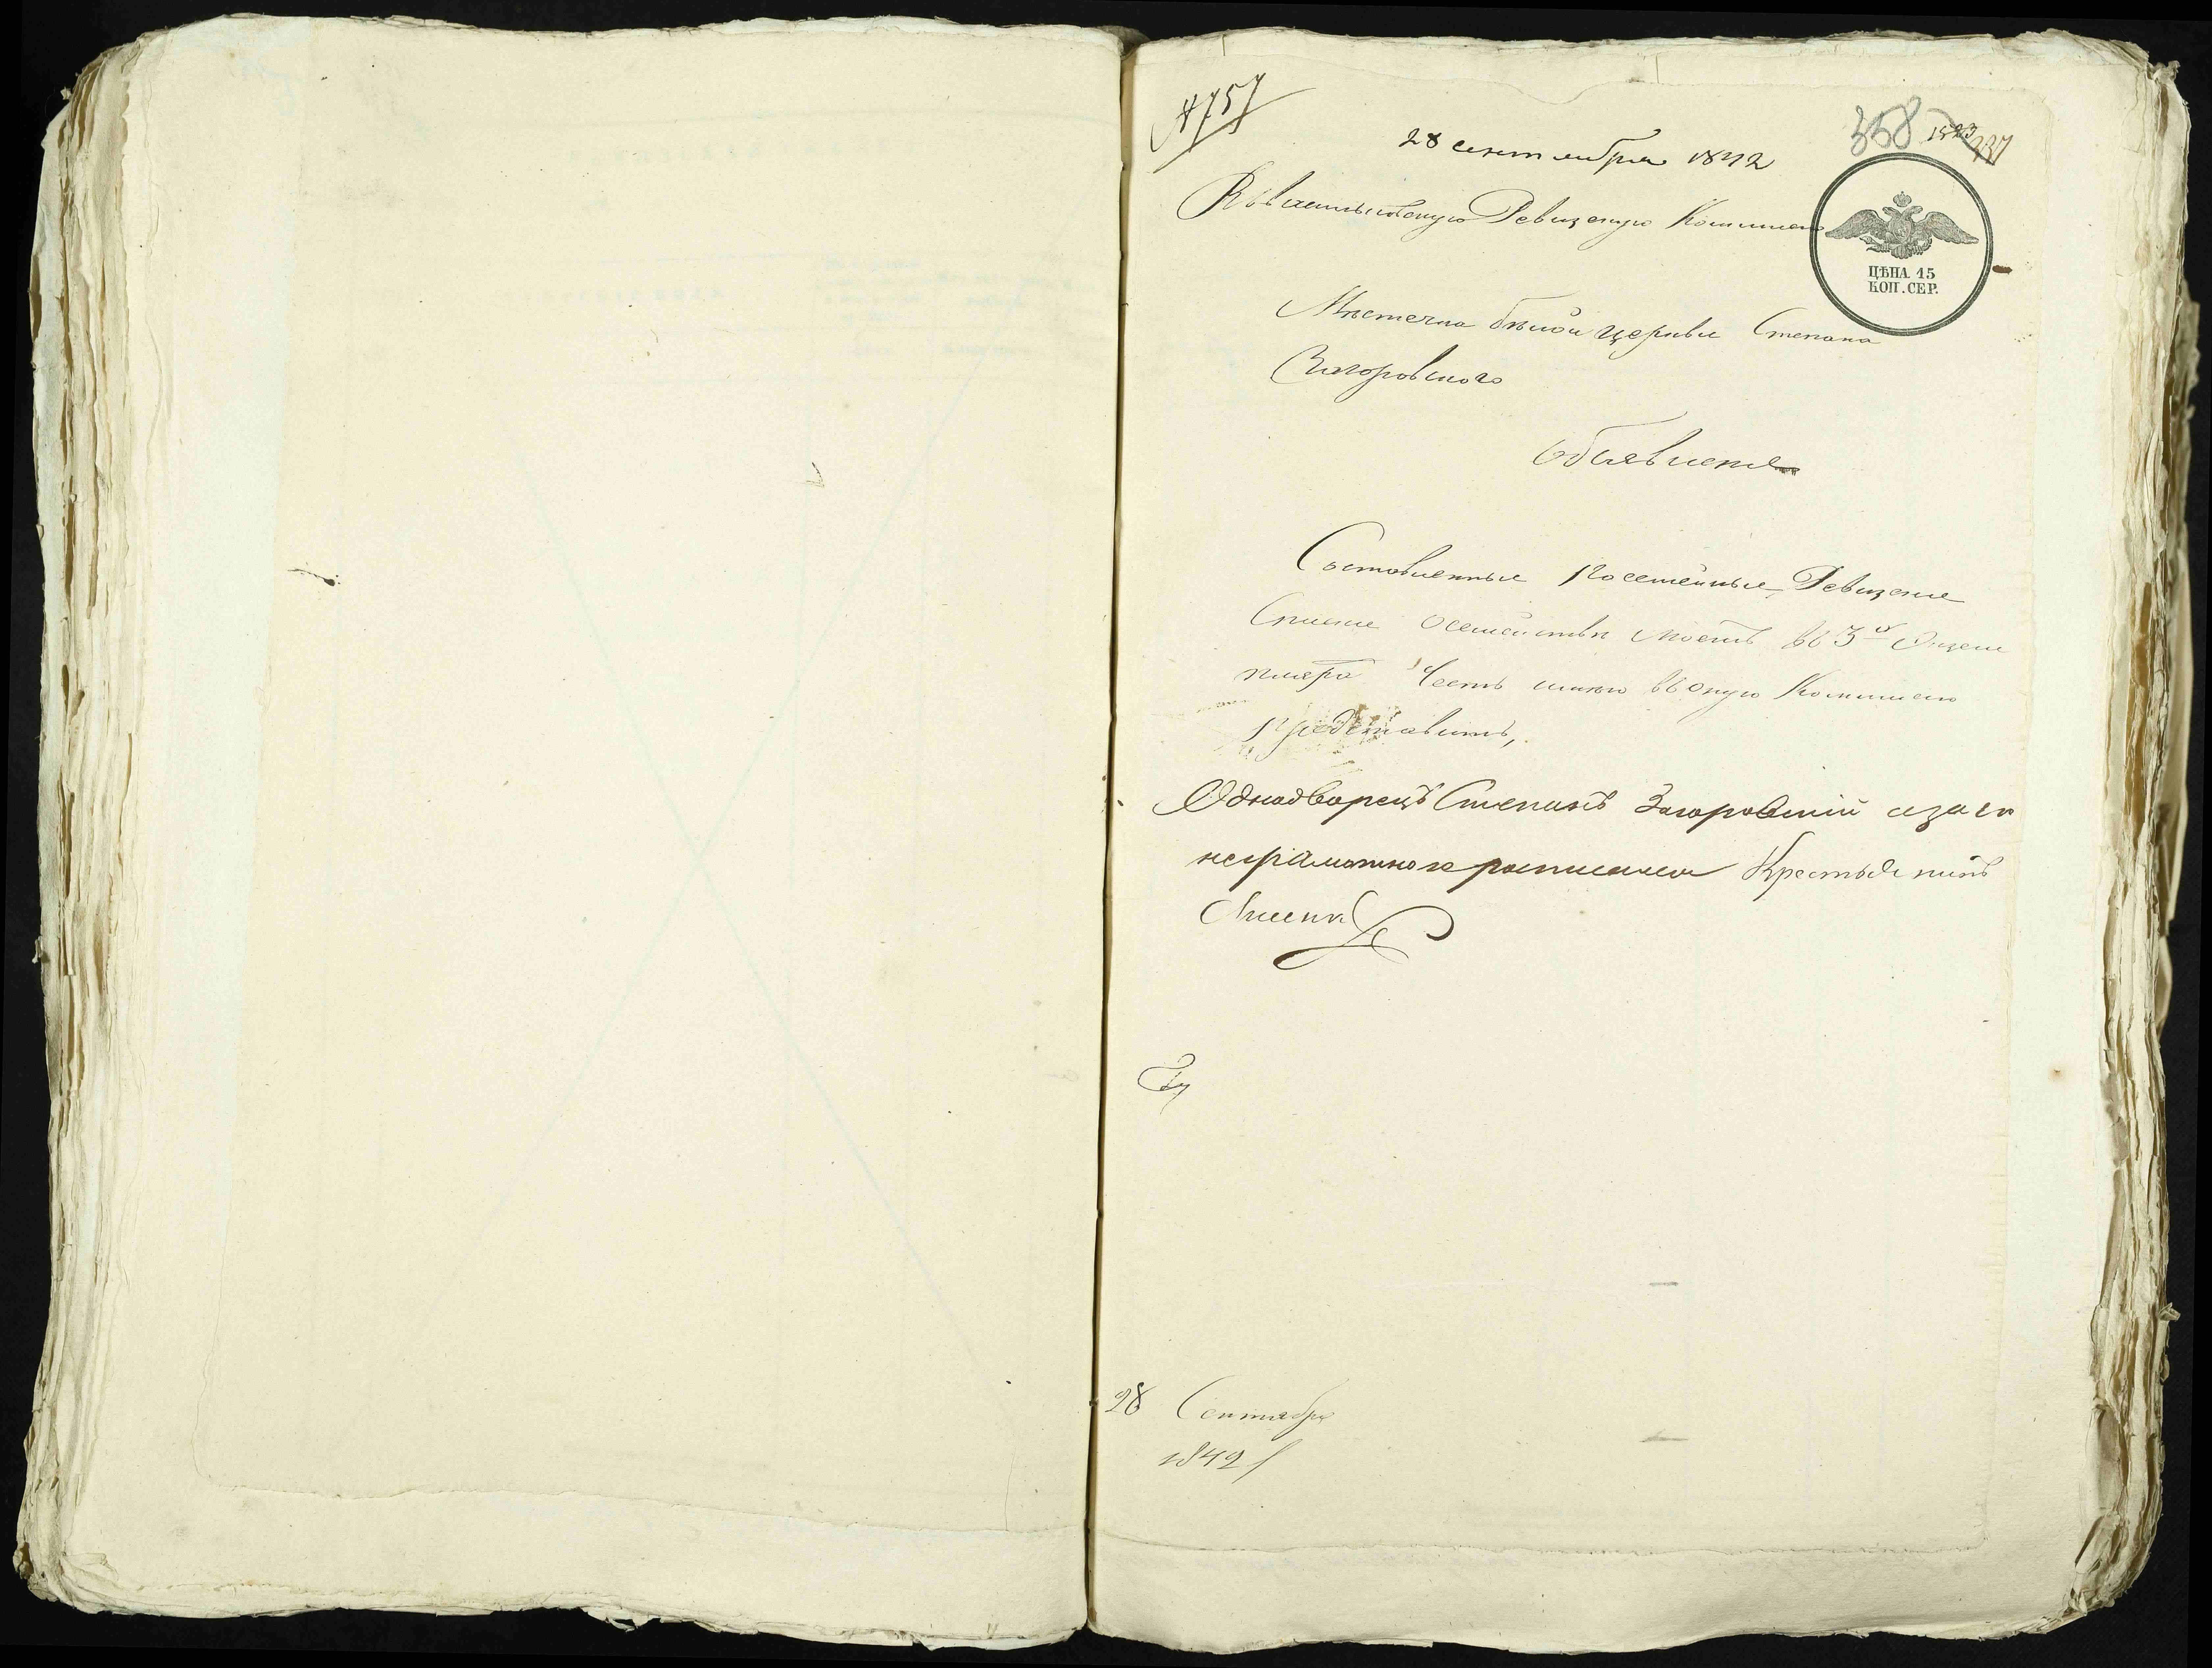 28 сентября 1842
358
ЦѢНА 15
КОП. СЕР.
Въ Васильковскую Ревизскую Коммисію
Мѣстечка бѣлой церкви Степана
Загоровского
Объявленіе
Составленные посемейные Ревизские
Списки осемействѣ моемъ въ 3х Экзем
плярахъ Честь имѣю въоную Коммисію
представить,
Однодворецъ Степанъ Загоровскій азаего
неграмотного росписался Крестьянинъ
28 Сентября
1842